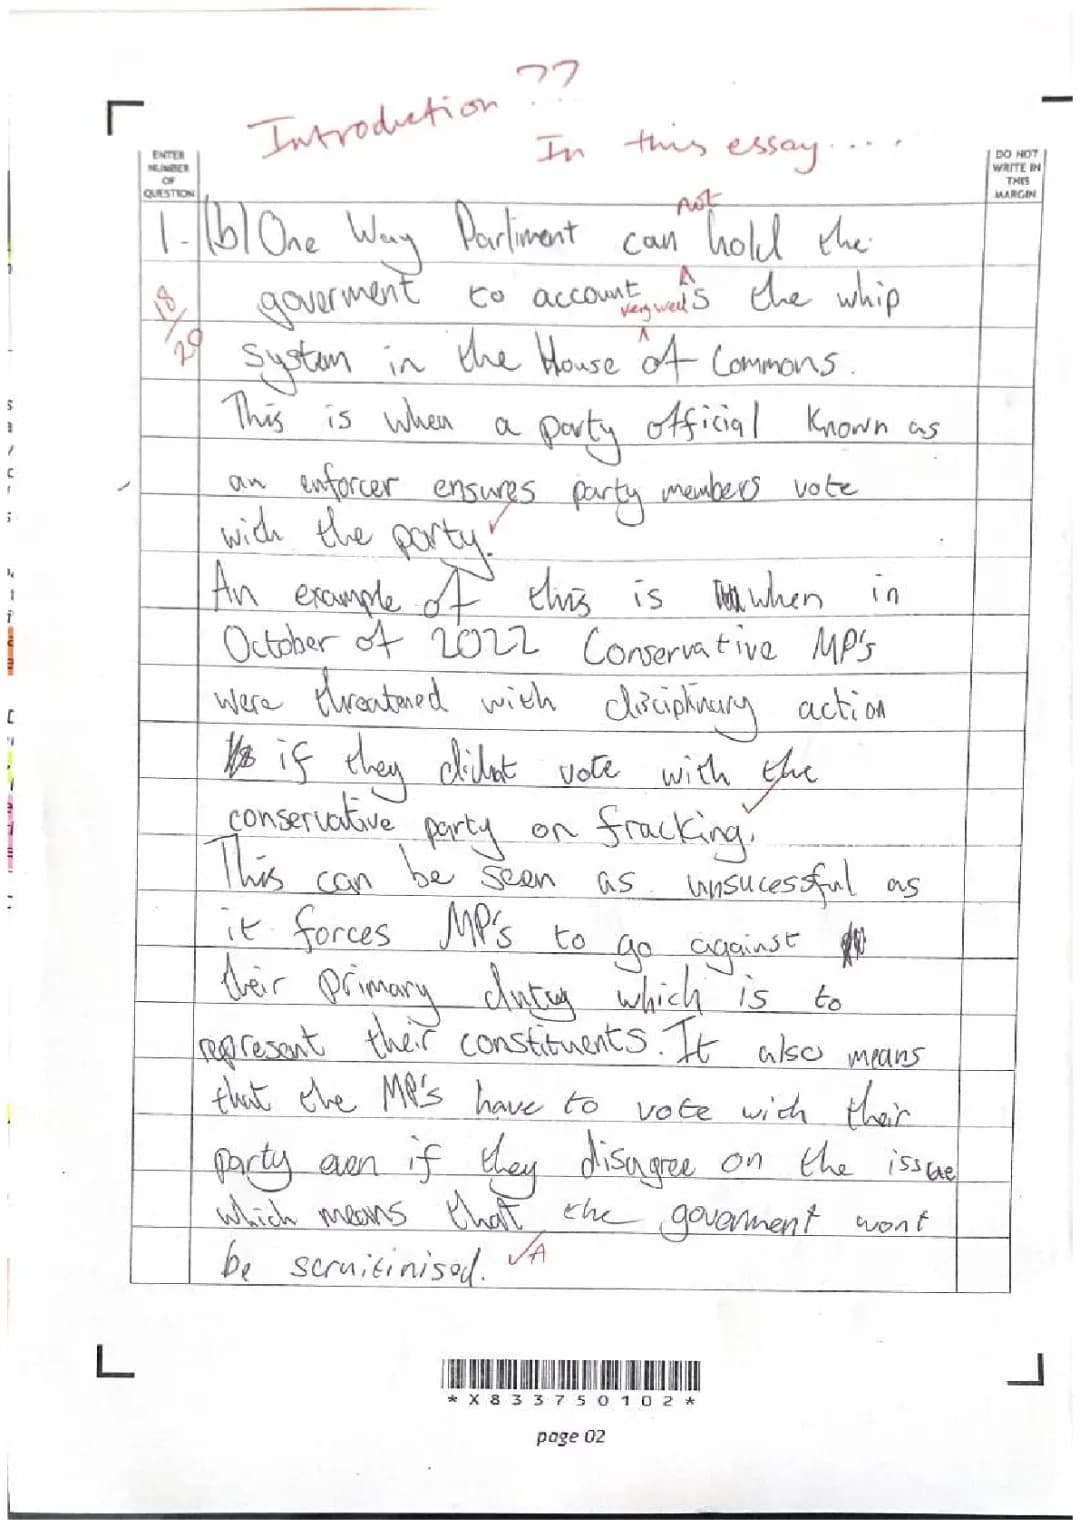 Introduction ??
In this essay....
ENTER
NUMBER
OF
QUESTION
DO NOT
WRITE IN
THIS
MARGIN
not
1. (b) One Way Parliment can hold the
goverment to account is the whip
very well
18/20
system in the House of Commons.
This is when a party official known as
an enforcer ensures party members vote
with the party.
An example of this is when in
October of 2022 Conservative MP's
were threatened with disciplinary action
if they didnt vote with the
conservative party on fracking.
This can be seen as unsucessful as
it forces MP's to go against
their primary duty which is to
represent their constituents. It also means
that the MP's have to vote with their
party even if they disagree on the issue
which means that the government wont
be scruitinised. A
*X833750102*
page 02